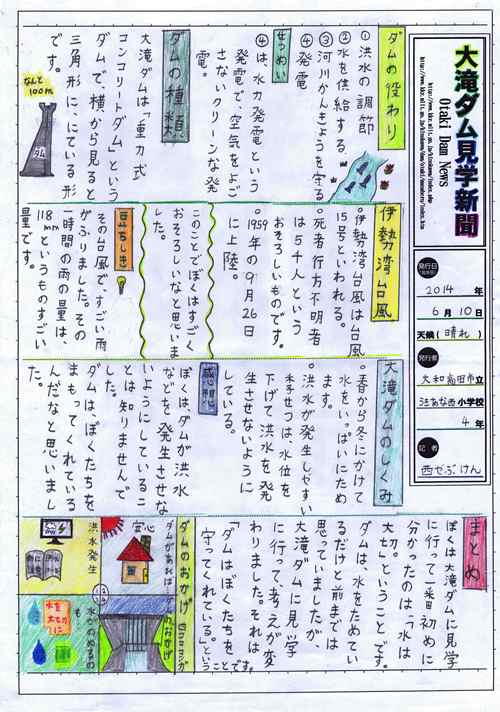 大滝ダム見学新聞
Otaki Dam News
発行日
2014年
6月10日
天候(晴れ)
発行者
大和高田市立
浮孔西小学校
4年
記者
ダムの役わり
①洪水の調節
②水を供給する。
③河川かんきょうを守る
④発電
せつめい
④は、水力発電という
発電で、空気をよご
さないクリーンな発
電。
ダムの種類
大滝ダムは「重力式
コンクリートダム」という
ダムで、横から見ると
三角形ににている形
です。
なんと
100m
伊勢湾台風
。伊勢湾台風は台風
15号といわれる。
。死者行方不明者
は5千人という
おそろしいものです。
。1959年の9月26日
に上陸。
このことでぼくはすごく
おそろしいなと思いま
した。
豆ちしき
その台風で、すごい雨
がふりました。その
一時間の雨の量は、
118mmというものすごい
量です。
大滝ダムのしくみ
。春から冬にかけて
水をいっぱいにため
ます。
。洪水が発生しやすい
季せつは、水位を
下げて洪水を発
生させないように
している。
感想
ぼくはダムが洪水
などを発生させな
いようにしているこ
とは知りませんで
した。
ダムは、ぼくたちを
まもってくれている
んだなと思いまし
た。
まとめ
ぼくは大滝ダムに見学
に行って一番初めに
分かったのは、「水は
大切。」ということです。
ダムは、水をためてい
るだけと前までは
思っていましたが、
大滝ダムに見学
に行って、考えが変
わりました。それは
「ダムはぼくたちを
守ってくれている。」という
ことです。
ダムのおかげ
4コママンガ
ダムがあれば
安心
洪水発生
水を
大切
に